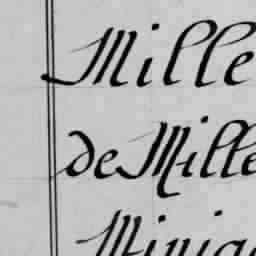 Mille
de Mille